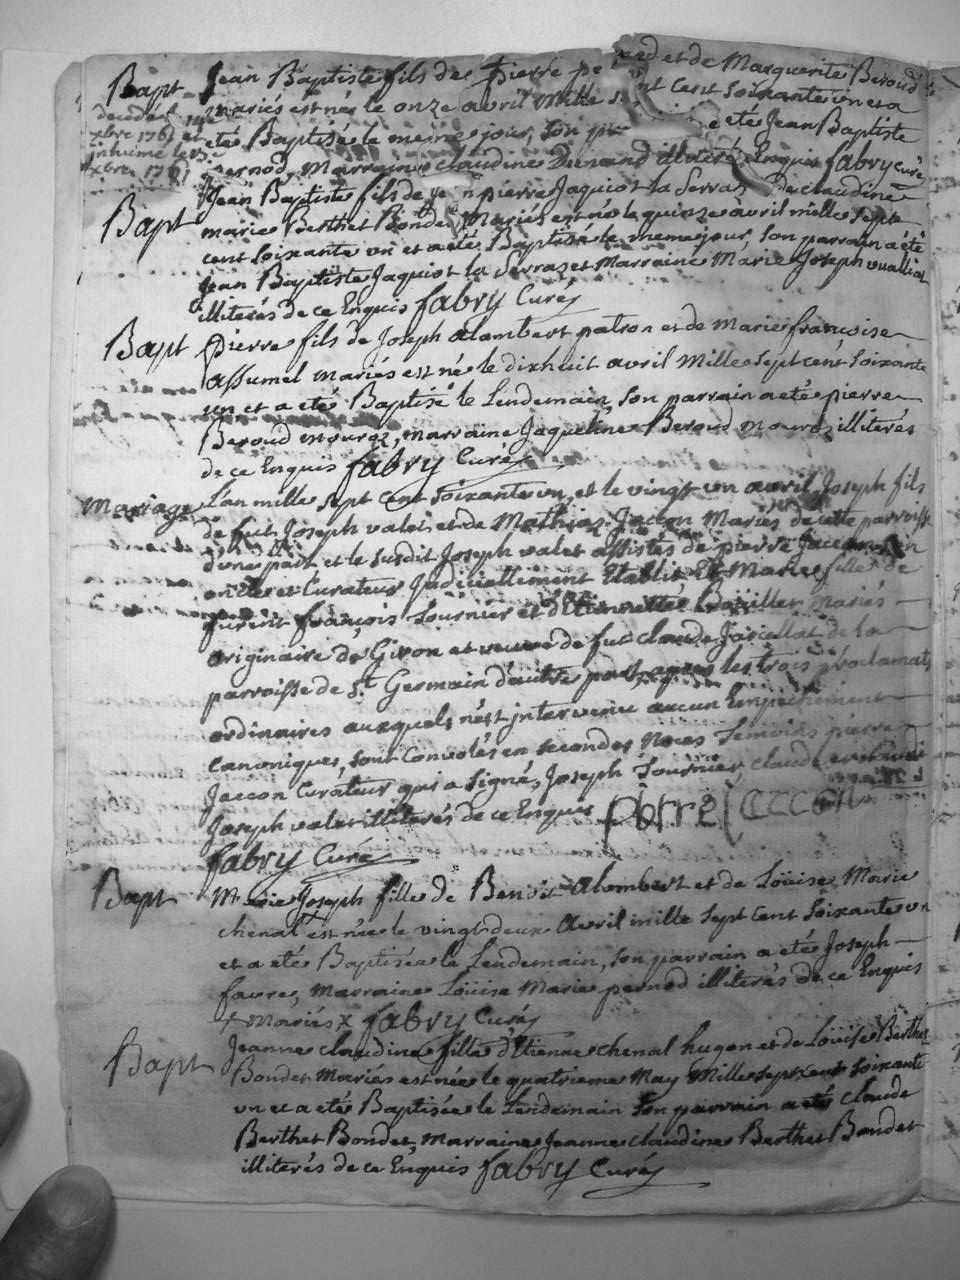 Bapt
decedé le
xbre 1761 et
inhumé le
xbre 1761
Jean Baptiste fils de pierre pe et de Marguerite Beroud
mariés est né le onze avril mille s nt cent soixante un et a
eté Baptisé le meme jour, son p a eté Jean Baptiste
pernod, Marraine claudine Dunand illiterés Enquis fabry curé
Bapt
Jean Baptiste fils de je n pierre Jaquiot la Serraz De claudine
marie Berthet Bondet Mariés est né le quinze avril mille sept
cent soixante un et a eté Baptisé le meme jour, son parrain a eté
Jean Baptiste Jaquiot la Serraz et Marraine Marie Joseph vualliat
illiterés de ce Enquis fabry Curé
Bapt
Pierre fils de Joseph alambert patron et de Marie françoise
assumel mariés est né le dixhuit avril Mille sept cent soixante
un et a eté Baptisé le Lendemain, son parrain a eté pierre
Beroud mouraz, marraine Jaqueline Beroud mouraz illiterés
de ce Enquis fabry Curé
Mariage
L'an mille sept cent soixante un, et le vingt un avril Joseph fils
de fut Joseph valet et de Mathiaz Jaccon Mariés de cette parroisse
d'une part et le susdit Joseph valet assistés de pierre Jaccon son
oncle et Curateur Judiciellement Etablit Et Marie fille de
furent françois Tournier et d'Etiennette Brailler mariés
originaire de Giron et veuve de fut claude Jarcellat de la
parroisse de St Germain d'autre part, apres les trois proclamats
ordinaires auxquels n'est intervenu aucun Empechement
canoniques, sont Convolés en secondes Noces Temoins pierre
Jaccon Curateur qui a signé, Joseph Tournier, claude
Joseph valet illiterés de ce Enquis piérre jaccon
fabry Curé
Bapt
Marie Joseph fille de Benoit alombert et de Loüise Marie
chenal est née le vingt deux avril mille sept cent soixante un
et a eté Baptisée le Lendemain, son parrain a eté Joseph
favre, marraine Loüise Marie pernod illiterés de ce Enquis
x Mariés x fabry Curé
Bapt
Jeanne claudine fille d'Etienne chenal hugon et de Loüise Berthet
Bondet Mariés est née le quatrieme May Mille sept cent soixante
un et a eté Baptisée le Lendemain son parrain a eté claude
Berthet Bondet, marraine Jeanne claudine Berthet Bondet
illiterés de ce Enquis fabry Curé